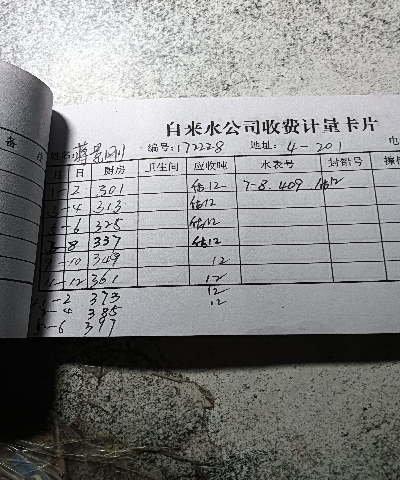 自来水公司收费计量卡片
姓名: 蒋景刚 编号: 172228 地址: 4-201 电
月 日 厨房 卫生间 应收吨 水表号 封铅号
1-2 301 估12 7-8.409 估12
3-4 313 估12
5-6 325 估12
7-8 337 估12
9-10 349 12
11-12 361 12
1-2 373 12
3-4 385 12
5-6 397